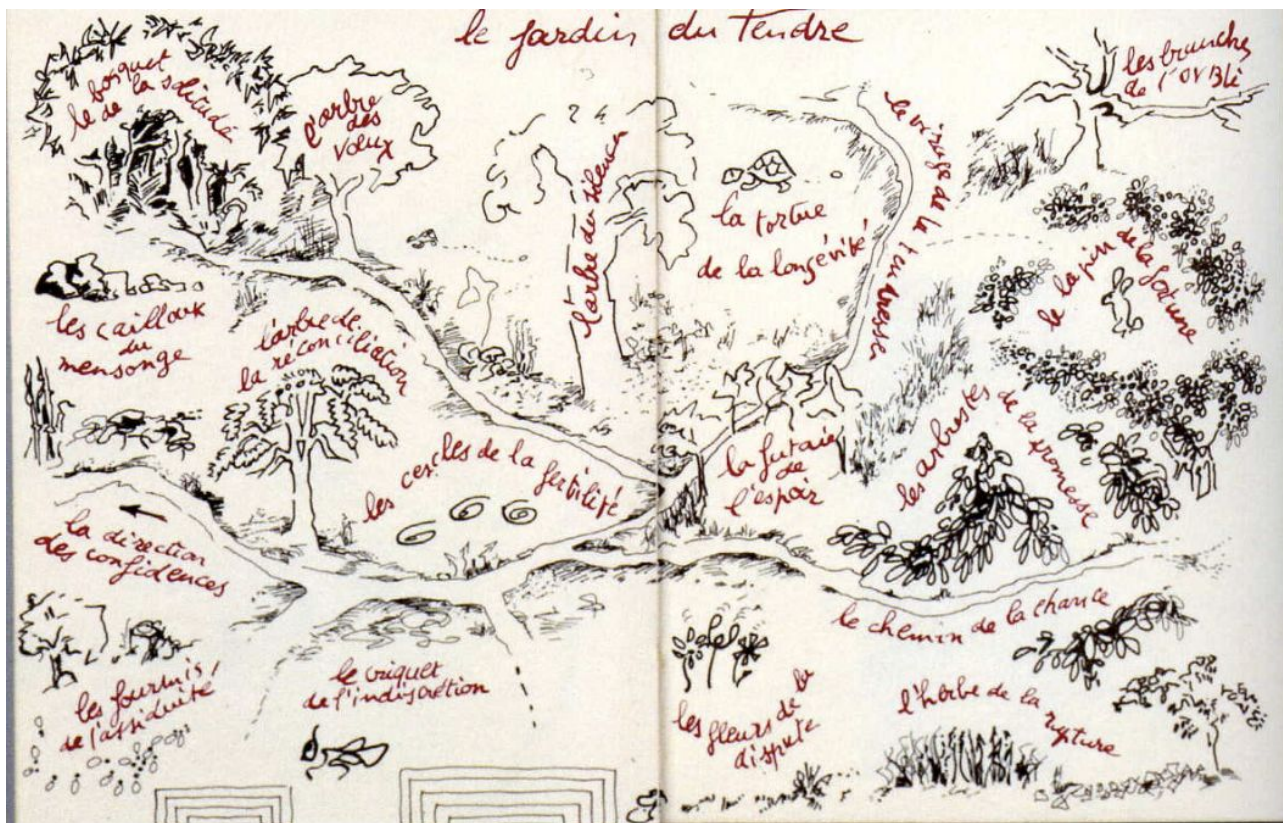 le jardin du Tendre
le bosquet
de la solitude
l'arbre
des
vœux
l'arbre du silence
la tortue
de la longévité
le virage de la tendresse
les branches
de l'OVBLi
le pin de la fortune
les cailloux
du
mensonge
l'arbre de
la réconciliation
les cercles de la fertilité
la futaie
de
l'espoir
les arbustes de la promesse
la direction
des confidences
le chemin de la chance
les fourmis
de l'assiduité
le criquet
de l'indiscrétion
les fleurs de la
dispute
l'herbe de la rupture